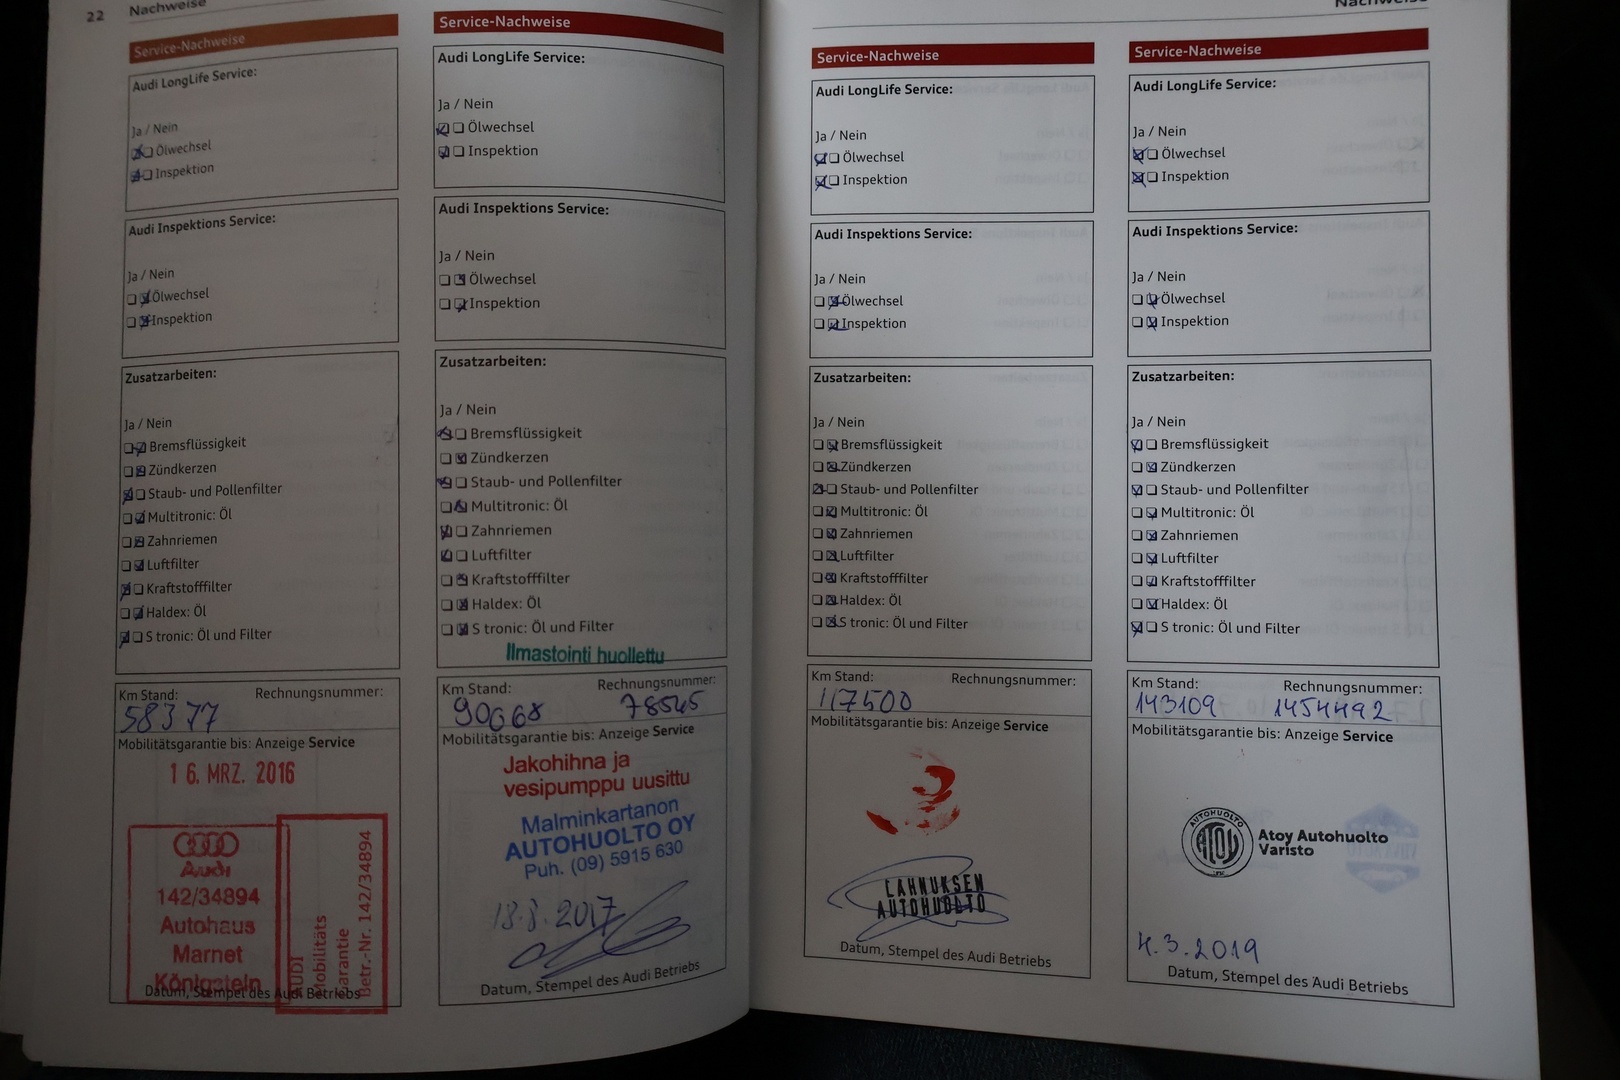 22 Nachweise
Service-Nachweise
Audi LongLife Service:
Ja / Nein
Ölwechsel
Inspektion
Audi Inspektions Service:
Ja / Nein
Ölwechsel
Inspektion
Zusatzarbeiten:
Ja / Nein
Bremsflüssigkeit
Zündkerzen
Staub- und Pollenfilter
Multitronic: Öl
Zahnriemen
Luftfilter
Kraftstofffilter
Haldex: Öl
S tronic: Öl und Filter
Km Stand: Rechnungsnummer:
58377
Mobilitätsgarantie bis: Anzeige Service
16. MRZ. 2016
Audi
142/34894
Autohaus
Marnet
Königstein
AUDI
Mobilitäts
Garantie
Betr.-Nr. 142/34894
Datum, Stempel des Audi Betriebs
Service-Nachweise
Audi LongLife Service:
Ja / Nein
Ölwechsel
Inspektion
Audi Inspektions Service:
Ja / Nein
Ölwechsel
Inspektion
Zusatzarbeiten:
Ja / Nein
Bremsflüssigkeit
Zündkerzen
Staub- und Pollenfilter
Multitronic: Öl
Zahnriemen
Luftfilter
Kraftstofffilter
Haldex: Öl
S tronic: Öl und Filter
Ilmastointi huollettu
Km Stand: Rechnungsnummer:
90668 78545
Mobilitätsgarantie bis: Anzeige Service
Jakohihna ja
vesipumppu uusittu
Malminkartanon
AUTOHUOLTO OY
Puh. (09) 5915 630
18.8.2017
Datum, Stempel des Audi Betriebs
Nachweise
Service-Nachweise
Audi LongLife Service:
Ja / Nein
Ölwechsel
Inspektion
Audi Inspektions Service:
Ja / Nein
Ölwechsel
Inspektion
Zusatzarbeiten:
Ja / Nein
Bremsflüssigkeit
Zündkerzen
Staub- und Pollenfilter
Multitronic: Öl
Zahnriemen
Luftfilter
Kraftstofffilter
Haldex: Öl
S tronic: Öl und Filter
Km Stand: Rechnungsnummer:
117500
Mobilitätsgarantie bis: Anzeige Service
LAHNUKSEN
AUTOHUOLTO
Datum, Stempel des Audi Betriebs
Service-Nachweise
Audi LongLife Service:
Ja / Nein
Ölwechsel
Inspektion
Audi Inspektions Service:
Ja / Nein
Ölwechsel
Inspektion
Zusatzarbeiten:
Ja / Nein
Bremsflüssigkeit
Zündkerzen
Staub- und Pollenfilter
Multitronic: Öl
Zahnriemen
Luftfilter
Kraftstofffilter
Haldex: Öl
S tronic: Öl und Filter
Km Stand: Rechnungsnummer:
143109 1454492
Mobilitätsgarantie bis: Anzeige Service
AUTOHUOLTO
ATOY
Atoy Autohuolto
Varisto
4.3.2019
Datum, Stempel des Audi Betriebs